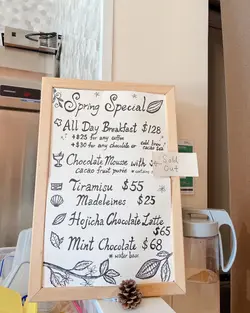 Spring Special
All Day Breakfast $128
+$25 for any coffee
+$30 for any chocolate or
cold brew
cacao tea
Chocolate Mousse with
cacao fruit purée
Sold
Out
Tiramisu $55
Madeleines $25
Hojicha Chocolate Latte
$65
Mint Chocolate $68
* water base